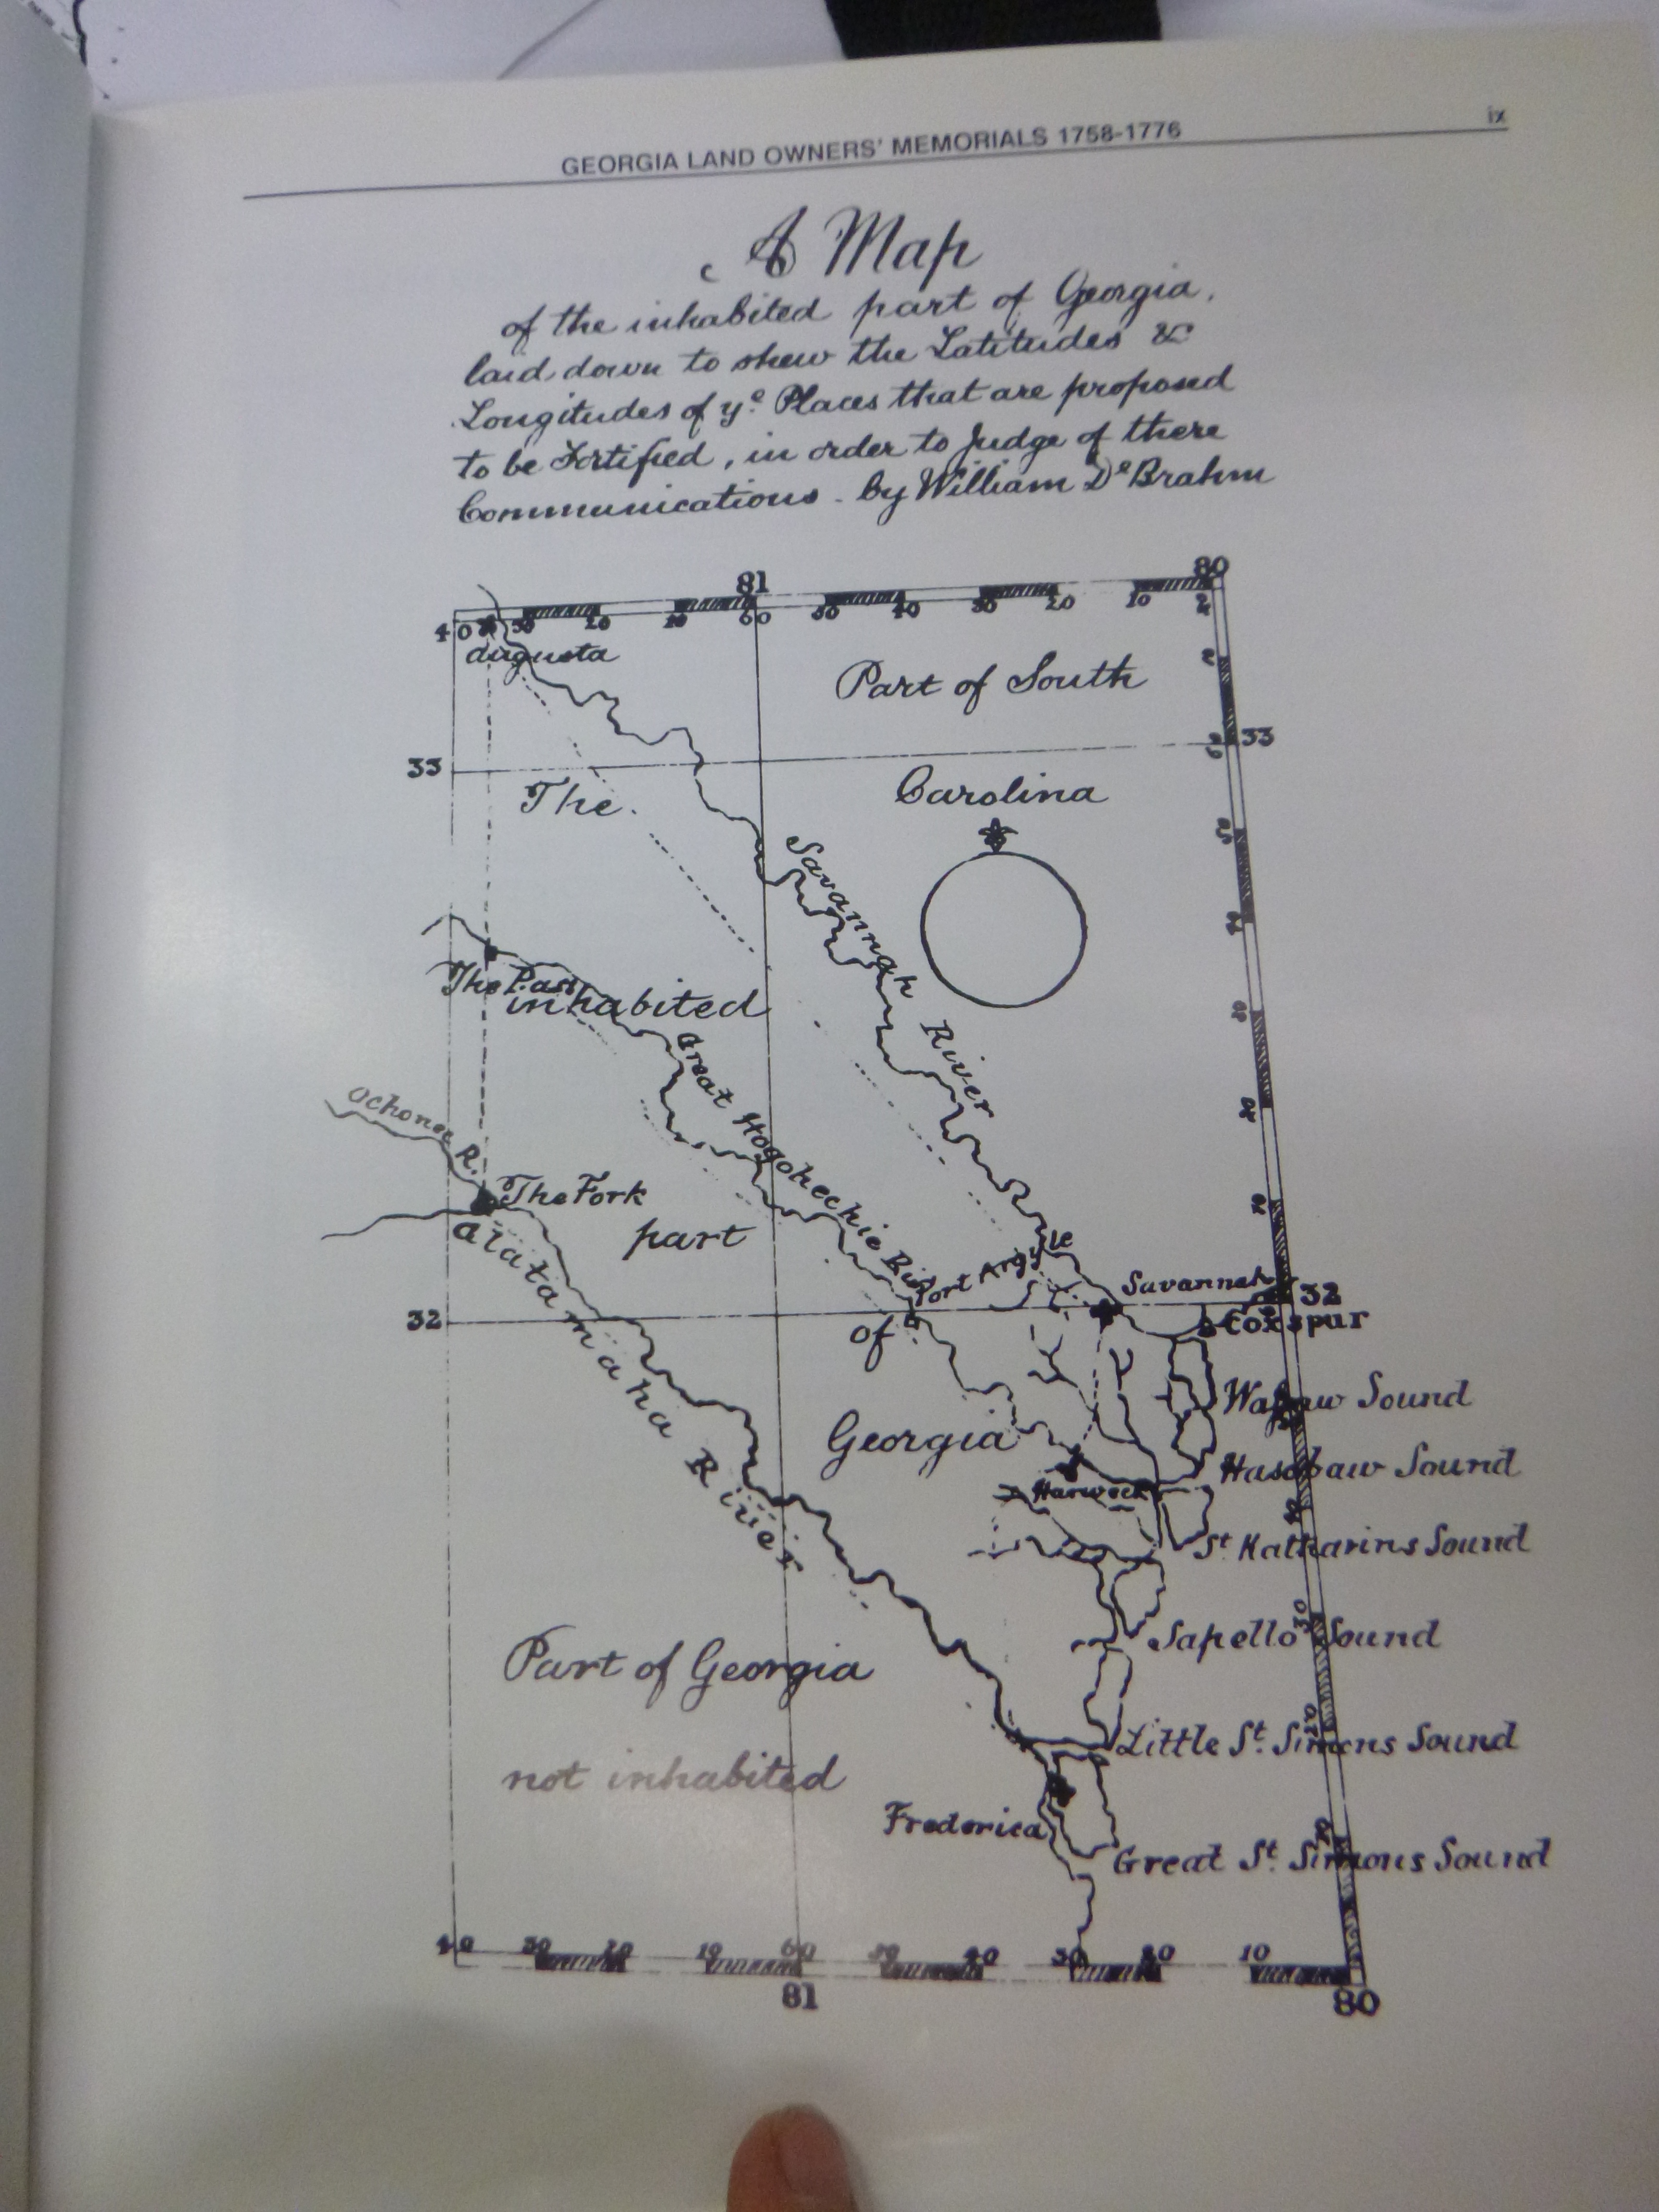 GEORGIA LAND OWNERS' MEMORIALS 1758-1776
ix
A Map
of the inhabited part of Georgia,
laid down to shew the Latitudes &
Longitudes of yᵉ Places that are proposed
to be Fortified, in order to Judge of there
Communications. by William Dᵉ Brahm
81
80
40 30 20 10 60 50 40 30 20 10
Augusta
Part of South
33
33
The
Carolina
Savannah River
The Pass
inhabited
Great Hogohechie Riv
Ochonee R.
The Fork
part
Alatamaha River
Fort Argyle
Savannah
32
32
Coxspur
of
Wassaw Sound
Georgia
Hassabaw Sound
Harweck
St Katharins Sound
Sapello Sound
Part of Georgia
Little St. Simons Sound
not inhabited
Frederica
Great St. Simons Sound
40 30 20 10 60 50 40 30 20 10
81
80